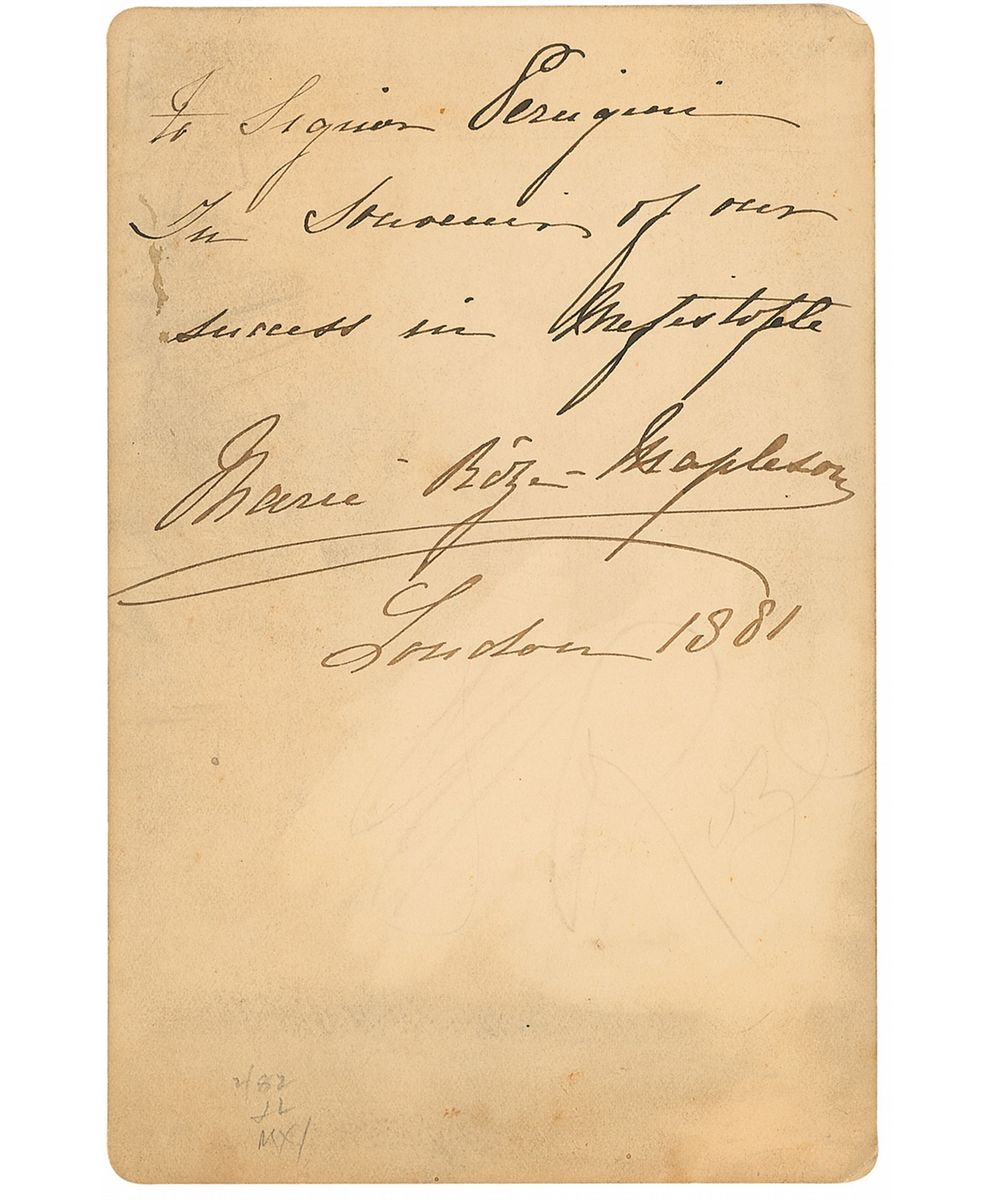 To Signor Perugini
In Souvenir of our
success in Mefistofele
Marie Rôze-Mapleson
London 1881